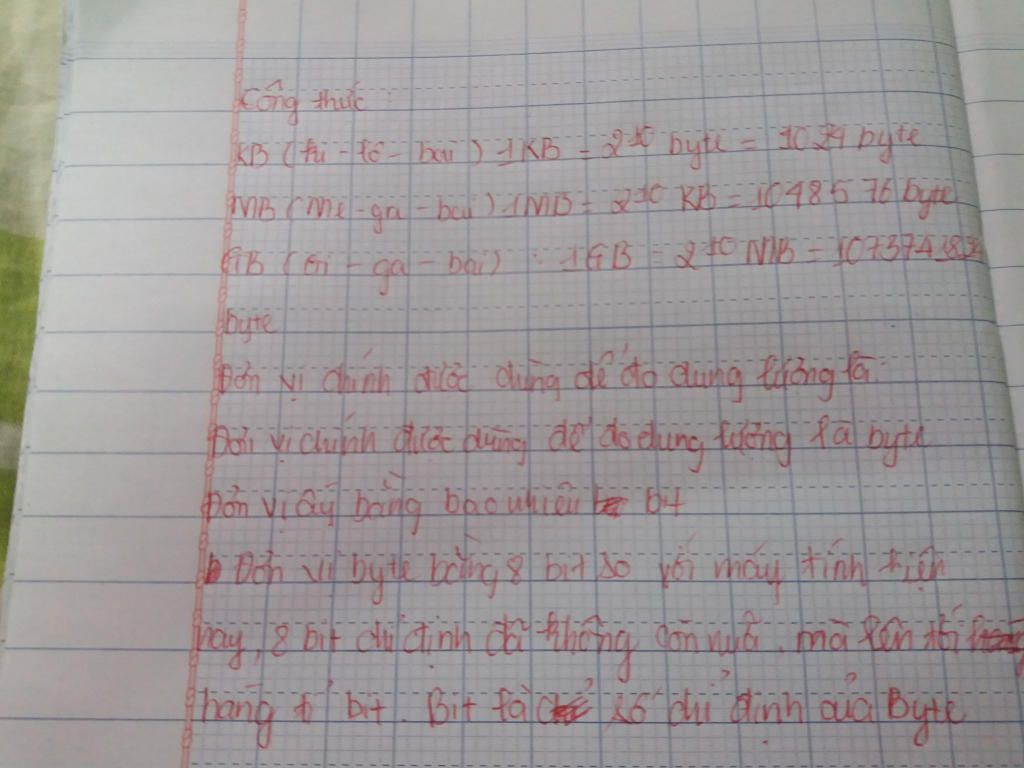 Công thức:
KB (ki-lô-bai) 1KB = 2^10 byte = 1024 byte
MB (Mê-ga-bai) 1MB = 2^10 KB = 1048576 byte
GB (Gi-ga-bai): 1GB = 2^10 MB = 107374182
byte
Đơn vị chính được dùng để đo dung lượng là:
Đơn vị chính được dùng để đo dung lượng là byte
Đơn vị ấy bằng bao nhiêu bit
Đơn vị byte bằng 8 bit so với máy tính hiện
nay, 8 bit chỉ định đã không còn nữa. mà lên tới
hàng tỉ bit. Bit là số chỉ định của Byte